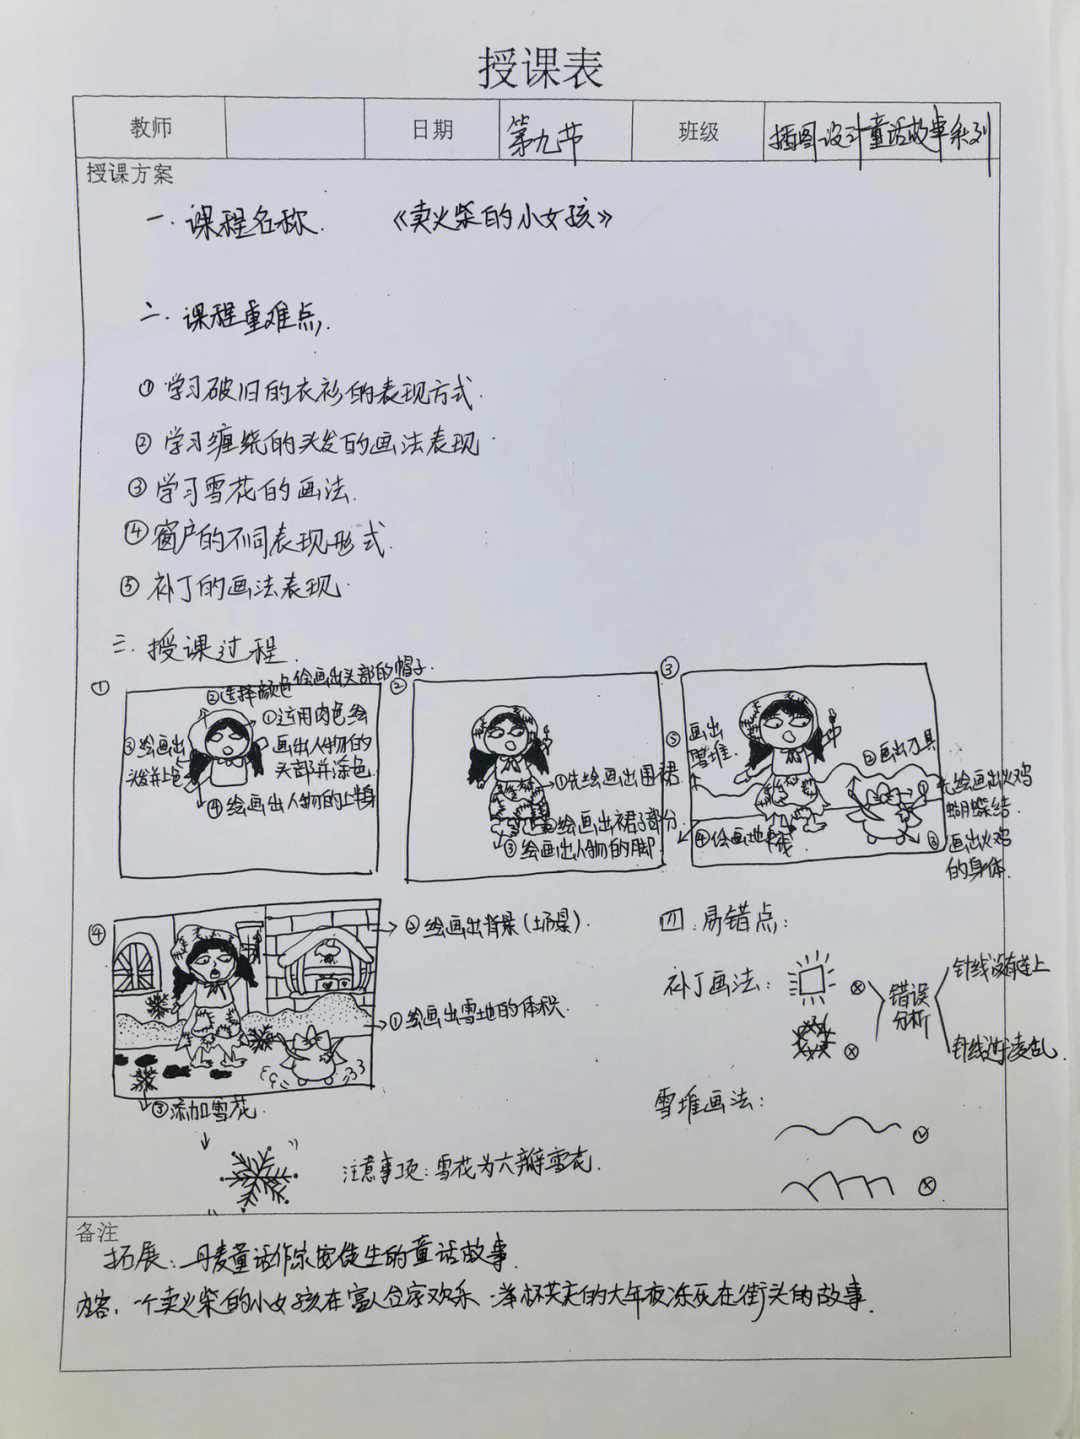 授课表
教师 日期 第九节 班级 插图设计童话故事系列
授课方案
一.课程名称. 《卖火柴的小女孩》
二.课程重难点.
①学习破旧的衣衫的表现方式.
②学习缠绕的头发的画法表现
③学习雪花的画法.
④窗户的不同表现形式.
⑤补丁的画法表现.
三.授课过程.
①
②选择颜色绘画出头部的帽子.
①运用肉色绘
画出人物的
头部并涂色.
③绘画出
头发并上色
④绘画出人物的上半身
②
①先绘画出围裙.
②绘画出裙子部分.
③绘画出人物的脚.
③
⑤画出
雪堆.
②画出刀具
①先绘画出火鸡
蝴蝶结.
③画出火鸡
的身体.
④绘画地平线
④
②绘画出背景(场景).
①绘画出雪地的体积.
③添加雪花.
注意事项:雪花为六瓣雪花.
四.易错点:
补丁画法:
错误
分析
针线没有连上
针线过于凌乱
雪堆画法:
备注
拓展:丹麦童话作家安徒生的童话故事.
内容:一个卖火柴的小女孩在富人合家欢乐.举杯共庆的大年夜冻死在街头的故事.